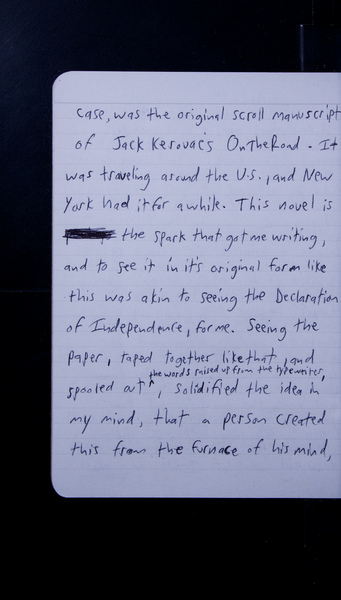 case, was the original scroll manuscript
of Jack Kerouac's On the Road. It
was traveling around the U.S., and New
York had it for a while. This novel is
the spark that got me writing,
and to see it in it's original form like
this was akin to seeing the Declaration
of Independence, for me. Seeing the
paper, taped together like that, and
the words raised up from the typewriter,
spooled out ^, solidified the idea in
my mind, that a person created
this from the furnace of his mind,